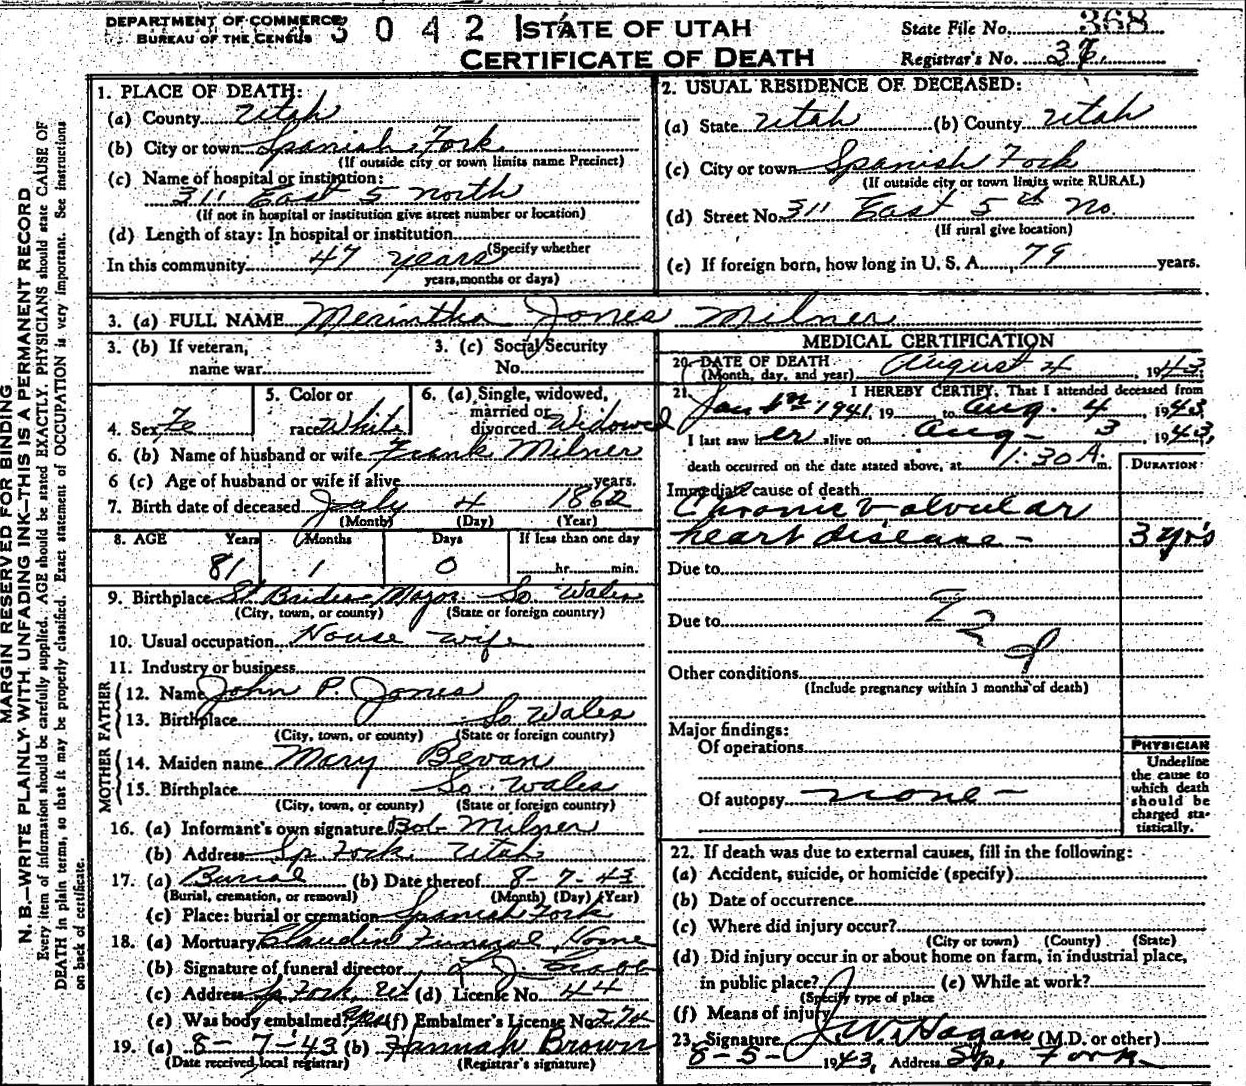 DEPARTMENT OF COMMERCE
BUREAU OF THE CENSUS
3 0 4 2
STATE OF UTAH
CERTIFICATE OF DEATH
State File No. 368
Registrar's No.
MARGIN RESERVED FOR BINDING
N. B.—WRITE PLAINLY WITH UNFADING INK—THIS IS A PERMANENT RECORD
Every item of information should be carefully supplied. AGE should be stated EXACTLY. PHYSICIANS should state CAUSE OF
DEATH in plain terms, so that it may be properly classified. Exact statement of OCCUPATION is very important. See instructions
on back of certificate.
1. PLACE OF DEATH:
(a) County Utah
(b) City or town Spanish Fork
(If outside city or town limits name Precinct)
(c) Name of hospital or institution:
311 East 5 North
(If not in hospital or institution give street number or location)
(d) Length of stay: In hospital or institution
(Specify whether
In this community 47 years
years, months or days)
2. USUAL RESIDENCE OF DECEASED:
(a) State Utah (b) County Utah
(c) City or town Spanish Fork
(If outside city or town limits write RURAL)
(d) Street No. 311 East 5th No.
(If rural give location)
(e) If foreign born, how long in U. S. A. 79 years.
3. (a) FULL NAME Merintha Jones Milner
3. (b) If veteran,
name war
3. (c) Social Security
No.
4. Sex Fe
5. Color or
race White
6. (a) Single, widowed,
married or
divorced Widowed
6. (b) Name of husband or wife Frank Milner
6 (c) Age of husband or wife if alive years.
7. Birth date of deceased July 4 1862
(Month) (Day) (Year)
8. AGE Years Months Days If less than one day
81 1 0 hr. min.
9. Birthplace St Brides Major So Wales
(City, town, or county) (State or foreign country)
10. Usual occupation House wife
11. Industry or business
FATHER
12. Name John P. Jones
13. Birthplace So Wales
(City, town, or county) (State or foreign country)
MOTHER
14. Maiden name Mary Bevan
15. Birthplace So. Wales
(City, town, or county) (State or foreign country)
16. (a) Informant's own signature Bob Milner
(b) Address Sp Fork Utah
17. (a) Burial (b) Date thereof 8-7-43
(Burial, cremation, or removal) (Month) (Day) (Year)
(c) Place: burial or cremation Spanish Fork
18. (a) Mortuary Claudin Funeral Home
(b) Signature of funeral director
(c) Address Sp Fork, Ut (d) License No. 44
(e) Was body embalmed? yes (f) Embalmer's License No. 
19. (a) 8-7-43 (b) Hannah Brown
(Date received local registrar) (Registrar's signature)
MEDICAL CERTIFICATION
20. DATE OF DEATH
(Month, day, and year) August 4, 1943
21. I HEREBY CERTIFY, That I attended deceased from
Jan 1941, 19 to Aug. 4, 1943
I last saw her alive on Aug- 3, 1943,
death occurred on the date stated above, at 1:30 A. m.
DURATION
Immediate cause of death
Chronic Valvular
heart disease - 3 yrs
Due to
Due to
Other conditions
(Include pregnancy within 3 months of death)
Major findings:
Of operations
Of autopsy none -
PHYSICIAN
Underline
the cause to
which death
should be
charged sta-
tistically.
22. If death was due to external causes, fill in the following:
(a) Accident, suicide, or homicide (specify)
(b) Date of occurrence
(c) Where did injury occur?
(City or town) (County) (State)
(d) Did injury occur in or about home on farm, in industrial place,
in public place? (e) While at work?
(Specify type of place
(f) Means of injury
23. Signature J. W. Hagan (M.D. or other)
8-5- 1943, Address Sp. Fork